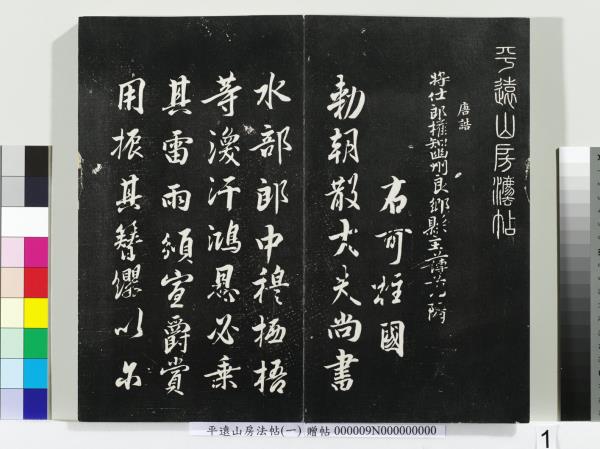 平遠山房法帖
唐誥
將仕郎權知幽州良鄉縣主簿
右可柱國
勅朝散大夫尚書
水部郎中穆
等渙汗鴻恩必乗
其雷雨頒宣爵賞
用振其簪纓以尔
平遠山房法帖(一) 贈帖 000009N000000000
1